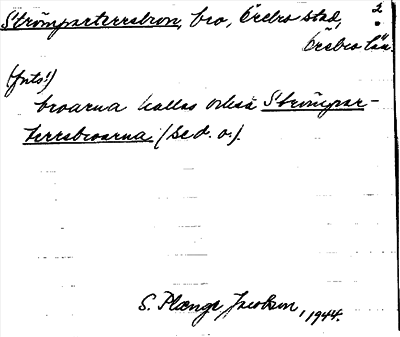 Strömparterrebron, bro, Örebro stad, 2.
Örebro län.
(forts!)
broarna kallas också Strömpar-
terrebroarna. (se d. o.).
S. Plænge Jacobson, 1944.